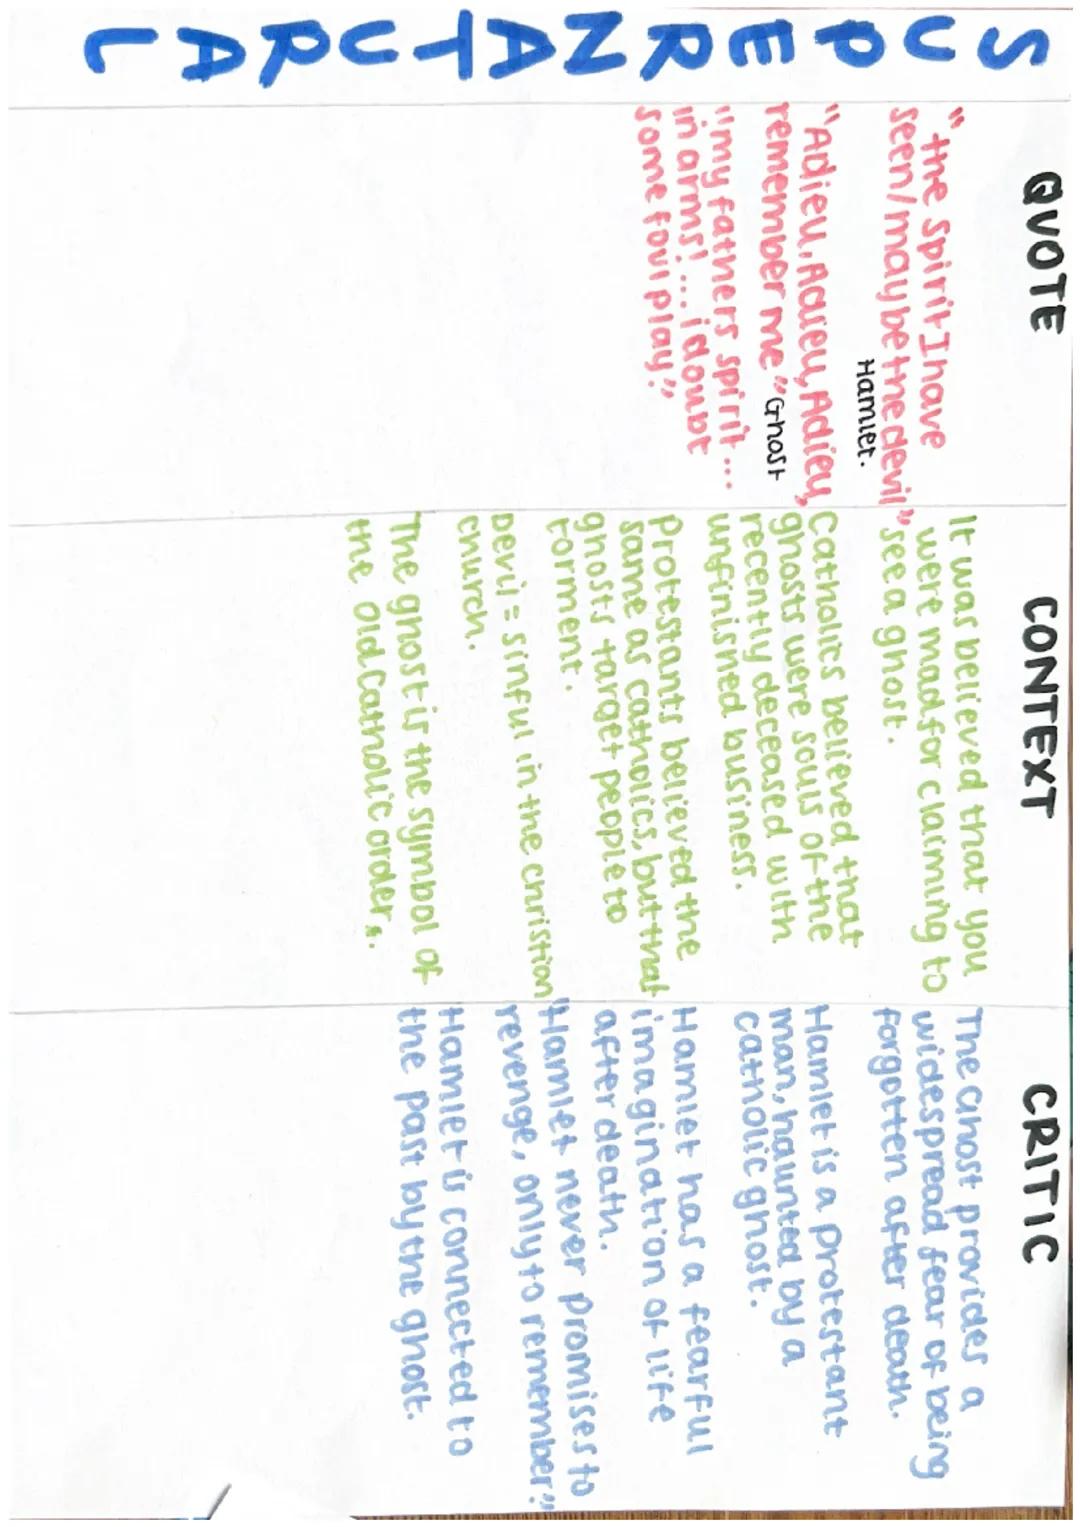 SUPERNATURAL
QUOTE
"the Spirit I have
seen/may be the devil"
Hamlet.
"Adieu, Adieu, Adieu,
remember me" Ghost
"my fathers spirit ...
in arms! ... i doubt
some foul play."
CONTEXT
It was believed that you
were mad for claiming to
see a ghost.
Catholics believed that
ghosts were souls of the
recently deceased with
unfinished business.
Protestants believed the
same as catholics, but that
ghosts target people to
torment.
Devil = sinful in the christian
church.
"The ghost is the symbol of
the old Catholic order".
CRITIC
The Ghost provides a
widespread fear of being
forgotten after death.
Hamlet is a protestant
man, haunted by a
catholic ghost.
Hamlet has a fearful
imagination of life
after death.
"Hamlet never promises to
revenge, only to remember"
Hamlet is connected to
the past by the ghost.